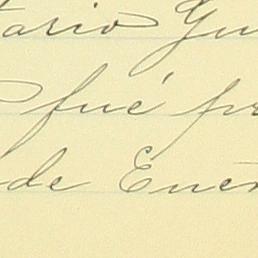 tario Gu
fué pr
de Ener